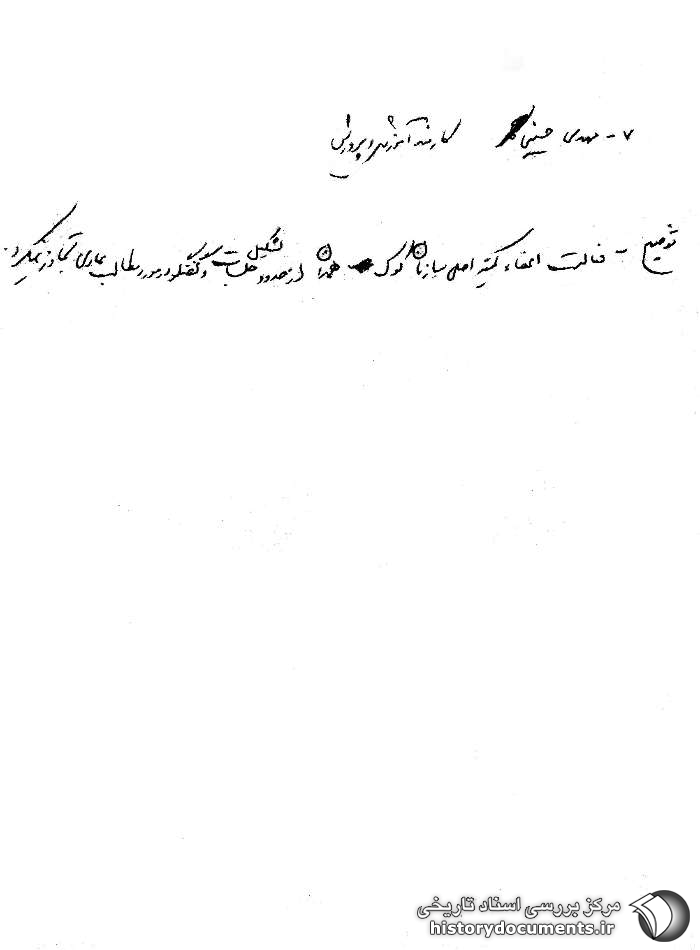 ۷- مهدی حسینی کارمند آموزش و پرورش
توضیح - فعالیت اعضاء کمیته اصلی سازمان کوک همدان از حدود تشکیل جلسات و گفتگو در مورد مطالب جاری تجاوز نمیکرد.
مرکز بررسی اسناد تاریخی
historydocuments.ir